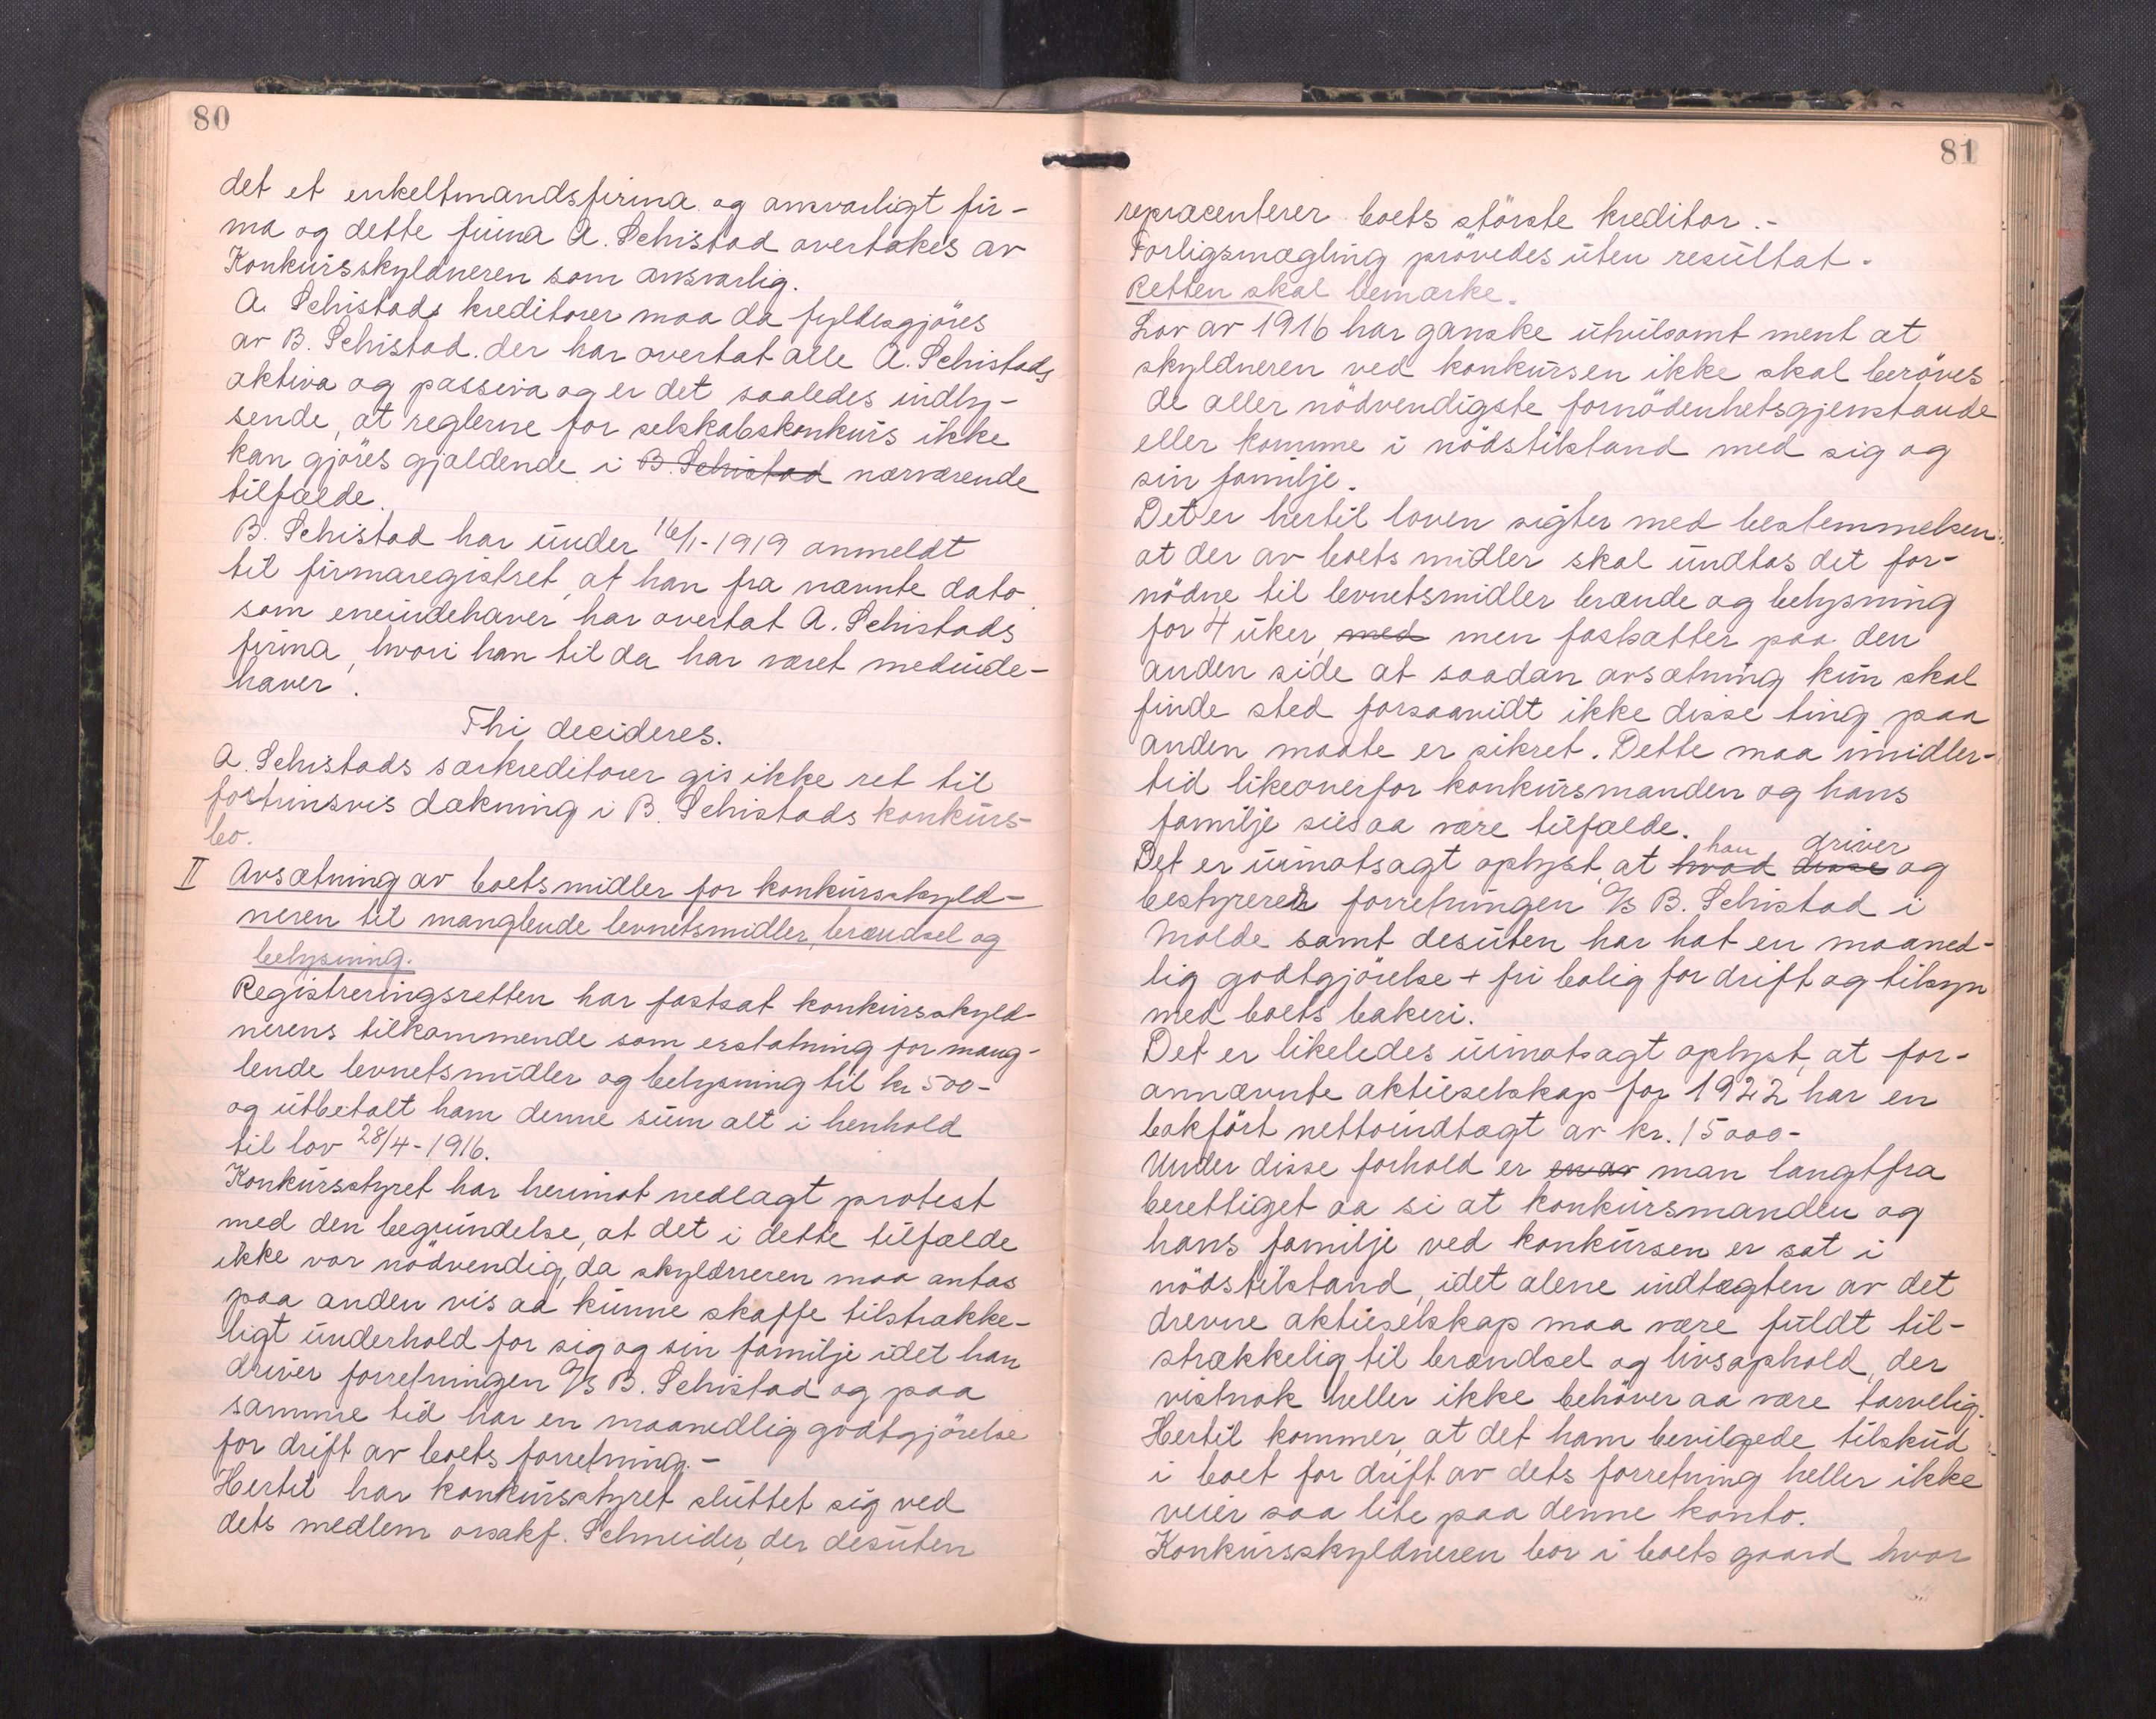 80
det et enkeltmandsfirma og ansvarligt fir-
ma og dette firma A. Schistad overtakes av
Konkursskyldneren som ansvarlig.
A. Schistads kreditorer maa da fyldesgjöres
av B. Schistad der har overtat alle A. Schistads
aktiva og passiva og er det saaledes indly-
sende, at reglerne for selskabskonkurs ikke
kan gjöres gjældende i B. Schistad nærværende
tilfælde.
B. Schistad har under 16/1-1919 anmeldt
til firmaregistret, at han fra nævnte dato
som eneindehaver har overtat A. Schistads
firma, hvori han til da har været medinde-
haver.
Thi decideres.
A. Schistads særkreditorer gis ikke ret til
fortrinsvis dækning i B. Schistads konkurs-
bo.
II Avsætning av boets midler for konkursskyld-
neren til manglende levnetsmidler, brændsel og
belysning.
Registreringsretten har fastsat konkursskyld-
nerens tilkommende som erstatning for mang-
lende levnetsmidler og belysning til kr 500-
og utbetalt ham denne sum alt i henhold
til lov 28/4-1916.
Konkursstyret har herimot nedlagt protest
med den begrundelse, at det i dette tilfælde
ikke var nödvendig, da skyldneren maa antas
paa anden vis aa kunne skaffe tilstrække-
ligt underhold for sig og sin familje idet han
driver forretningen A/S B. Schistad og paa
samme tid har en maanedlig godtgjörelse
for drift av boets forretning.-
Hertil har konkursstyret sluttet sig ved
dets medlem orsakf. Schneider, der desuten
81
repræcenterer boets störste kreditor.-
Forligsmægling prövedes uten resultat.
Retten skal bemærke.
Lov av 1916 har ganske utvilsomt ment at
skyldneren ved konkursen ikke skal beröves
de aller nödvendigste fornödenhetsgjenstande
eller komme i nödstilstand med sig og
sin familje.
Det er hertil loven sigter med bestemmelsen
at der av boets midler skal undtas det for-
nödne til levnetsmidler brænde og belysning
for 4 uker, med men fastsætter paa den
anden side at saadan avsætning kun skal
finde sted forsaavidt ikke disse ting paa
anden maate er sikret. Dette maa imidler-
tid likeoverfor konkursmanden og hans
familje siesaa være tilfælde.
han driver
Det er uimotsagt oplyst, at hvad disse og
bestyrerer forretningen A/S B. Schistad i
Molde samt desuten har hat en maaned-
lig godtgjörelse + fri bolig for drift og tilsyn
med boets bakeri.
Det er likeledes uimotsagt oplyst, at for-
annævnte aktieselskap for 1922 har en
bokfört nettoindtægt av kr. 15000-
Under disse forhold er man langtfra
berettiget aa si at konkursmanden og
hans familje ved konkursen er sat i
nödstilstand, idet alene indtægten av det
drevne aktieselskap maa være fuldt til-
strækkelig til brændsel og livsophold, der
vistnok heller ikke behöver aa være tarvelig.
Hertil kommer, at det ham bevilgede tilskud
i boet for drift av dets forretning heller ikke
veier saa lite paa denne konto.
Konkursskyldneren bor i boets gaard hvor